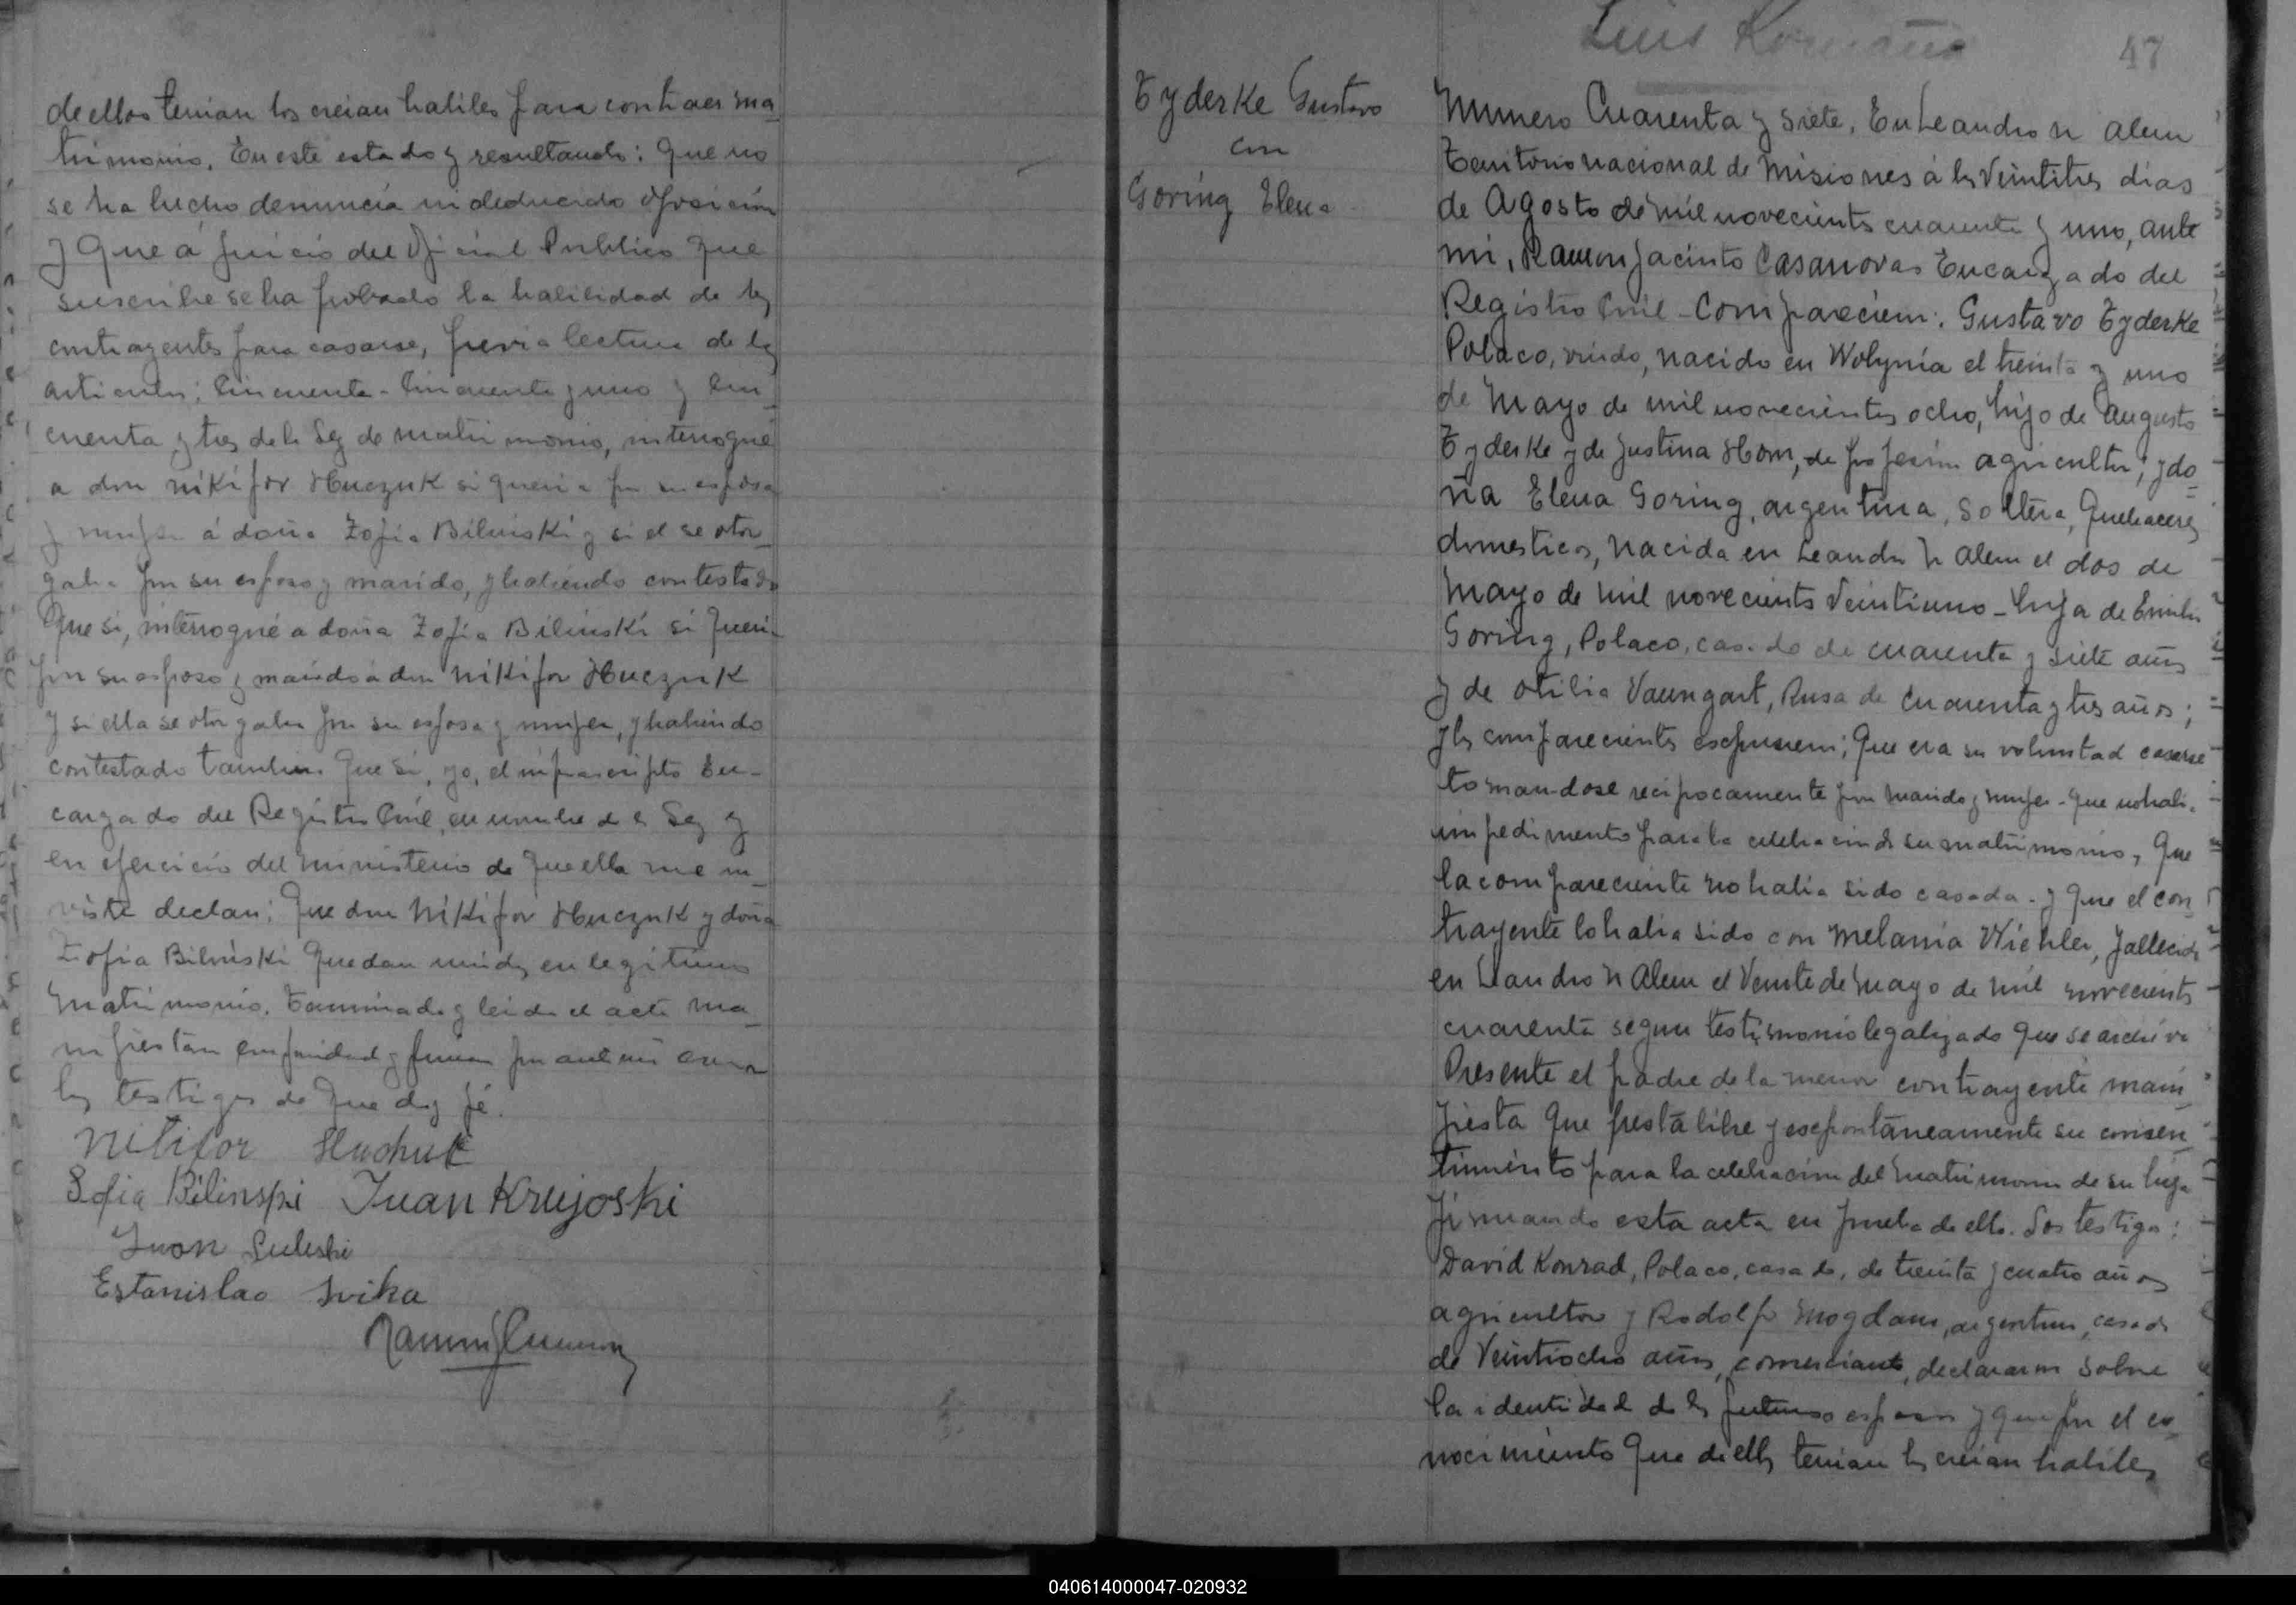 de ellos tenian los creian habiles para contraer ma_
trimonio. En este estado y resultando: Que no
se ha hecho denuncia ni deducido oposicion
y Que á juicio del Oficial Publico que
suscribe se ha probado la habilidad de los
contrayentes para casarse, previa lectura de los
articulos; Cincuenta - Cincuenta y uno y Cin_
cuenta y tres de la Ley de matrimonio, interrogué
a don Nikifor Huczuk si queria por su esposa
y mujer á doña Zofia Bilinski y si el se otor_
gaba por su esposo y marido, y habiendo contestado
Que si, interrogué a doña Zofia Bilinski si queria
por su esposo y marido á don Nikifor Huczuk
y si ella se otorgaba por su esposa y mujer, y habiendo
contestado tambien Que si, yo, el infrascripto En-
cargado del Registro Civil, en nombre de la Ley y
en ejercicio del ministerio de que ella me in_
viste declaro: Que don Nikifor Huczuk y doña
Zofia Bilinski Quedan unidos en legitimo
Matrimonio. Terminada y leida el acta ma_
nifiestan conformidad y firman por ante mi con
los testigos de que doy fé.
Nikifor Huchuk
Sofia Bilinski Juan Krujoski
Juan
Estanislao
Luis Romaña
47
Tyderke Gustavo
con
Goring Elena
Numero Cuarenta y siete. En Leandro N Alem
Territorio nacional de Misiones á los Veintitres dias
de Agosto de mil novecientos cuarenta y uno, ante
mi, Ramon Jacinto Casanovas Encargado del
Registro Civil - Comparecieron: Gustavo Tyderke
Polaco, viudo, nacido en Wolynia el treinta y uno
de Mayo de mil novecientos ocho, hijo de Augusto
Tyderke y de Justina Horn, de profesion agricultor; y do_
ña Elena Goring, argentina, Soltera, Quehaceres
domesticos, nacida en Leandro N Alem el dos de
Mayo de mil novecientos Veintiuno - hija de Emilio
Goring, Polaco, casado de cuarenta y siete años
y de Otilia Vaungart, Rusa de Cuarenta y tres años;
y los comparecientes espusieron; Que era su voluntad casarse
tomandose reciprocamente por marido y mujer - que no habia
impedimento para la celebracion de su matrimonio, Que
la compareciente no habia sido casada - y Que el con_
trayente lo habia sido con Melania Wiehler, fallecida
en Leandro N Alem el Veinte de Mayo de mil novecientos
cuarenta segun testimonio legalizado que se archiva
Presente el padre de la menor contrayente mani_
fiesta Que presta libre y espontaneamente su consen_
timiento para la celebracion del Matrimonio de su hija
firmando esta acta en prueba de ello. Los testigos:
David Konrad, Polaco, casado, de treinta y cuatro años
agricultor y Rodolfo Mogdans, argentino, casado
de Veintiocho años, comerciante, declararon sobre
la identidad de los futuros esposos y que por el co_
nocimiento Que de ellos tenian los creian habiles
040614000047-020932